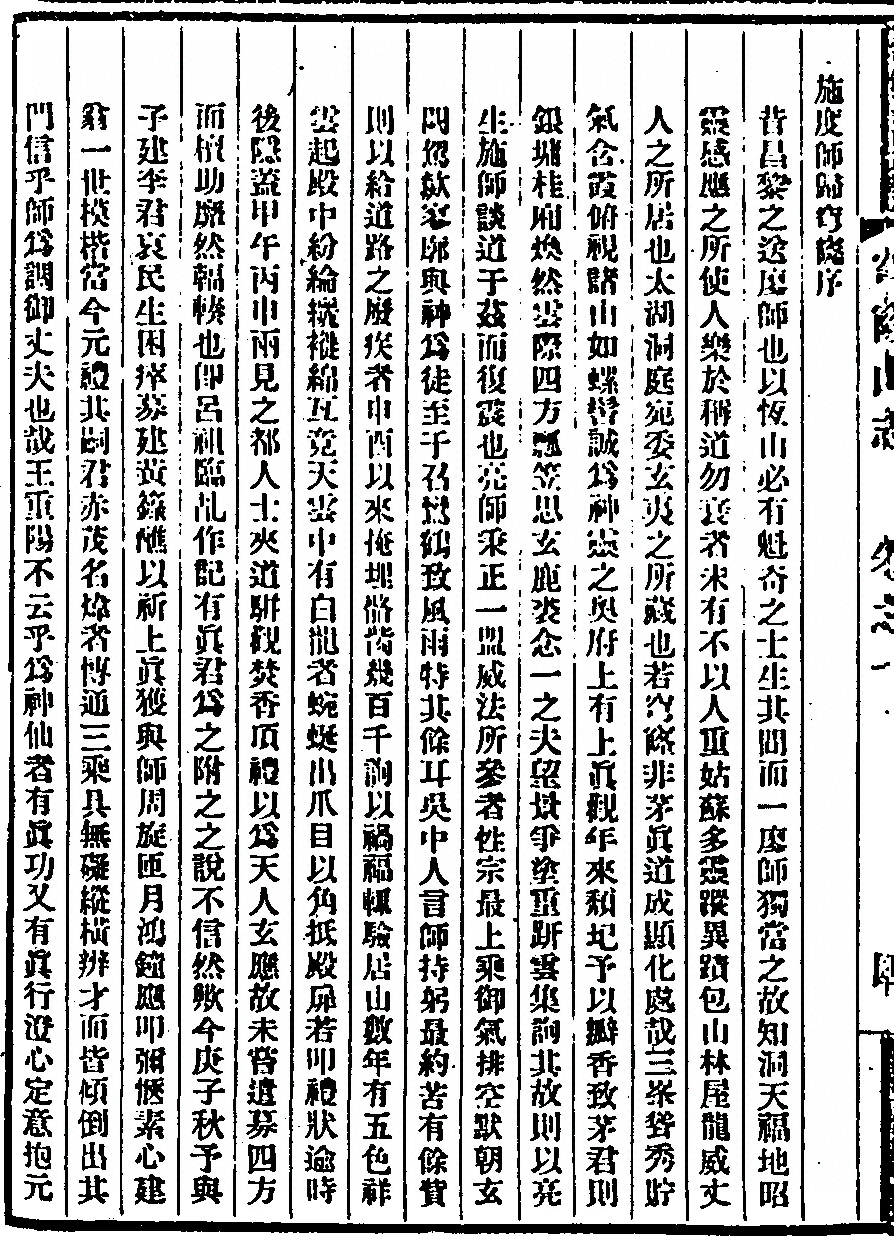 施度師歸穹窿序
昔昌黎之送廖師也以恆山必有魁奇之士生其間而一廖師獨當之故知洞天福地昭
靈感應之所使人樂於稱道勿衰者未有不以人重姑蘇多靈蹤異蹟包山林屋龍威丈
人之所居也太湖洞庭宛委玄夷之所藏也若穹窿非茅眞道成顯化處哉三峯聳秀貯
氣含霞俯視諸山如螺髻誠爲神靈之奧府上有上眞觀年來頹圮予以瓣香致茅君則
銀塘桂廟煥然雲際四方瓢笠思玄鹿裘念一之夫望景爭塗重趼雲集詢其故則以亮
生施師談道于茲而復震也亮師秉正一盟威法所參者性宗最上乘御氣排空默朝玄
閎翛歘寥廓與神爲徒至于召鸞鶴致風雨特其餘耳吳中人言師持躬最約苦有餘貲
則以給道路之廢疾者申酉以來掩埋骼胔幾百千詢以禍福輒驗居山數年有五色祥
雲起殿中紛綸縰縰綿亙竟天雲中有白龍者蜿蜒出爪目以角抵殿扉若叩禮狀逾時
後隱蓋甲午丙申兩見之都人士夾道駢觀焚香頂禮以爲天人玄應故未嘗遣募四方
而檀助麕然輻輳也卽呂祖臨乩作記有眞君爲之附之之說不信然歟今庚子秋予與
子建李君哀民生困瘁募建黃籙醮以祈上眞獲與師周旋匝月鴻鐘應叩彌愜素心建
翁一世模楷當今元禮其嗣君赤茂名煒者博通三乘具無礙縱橫辨才而皆傾倒出其
門信乎師爲調御丈夫也哉王重陽不云乎爲神仙者有眞功又有眞行澄心定意抱元